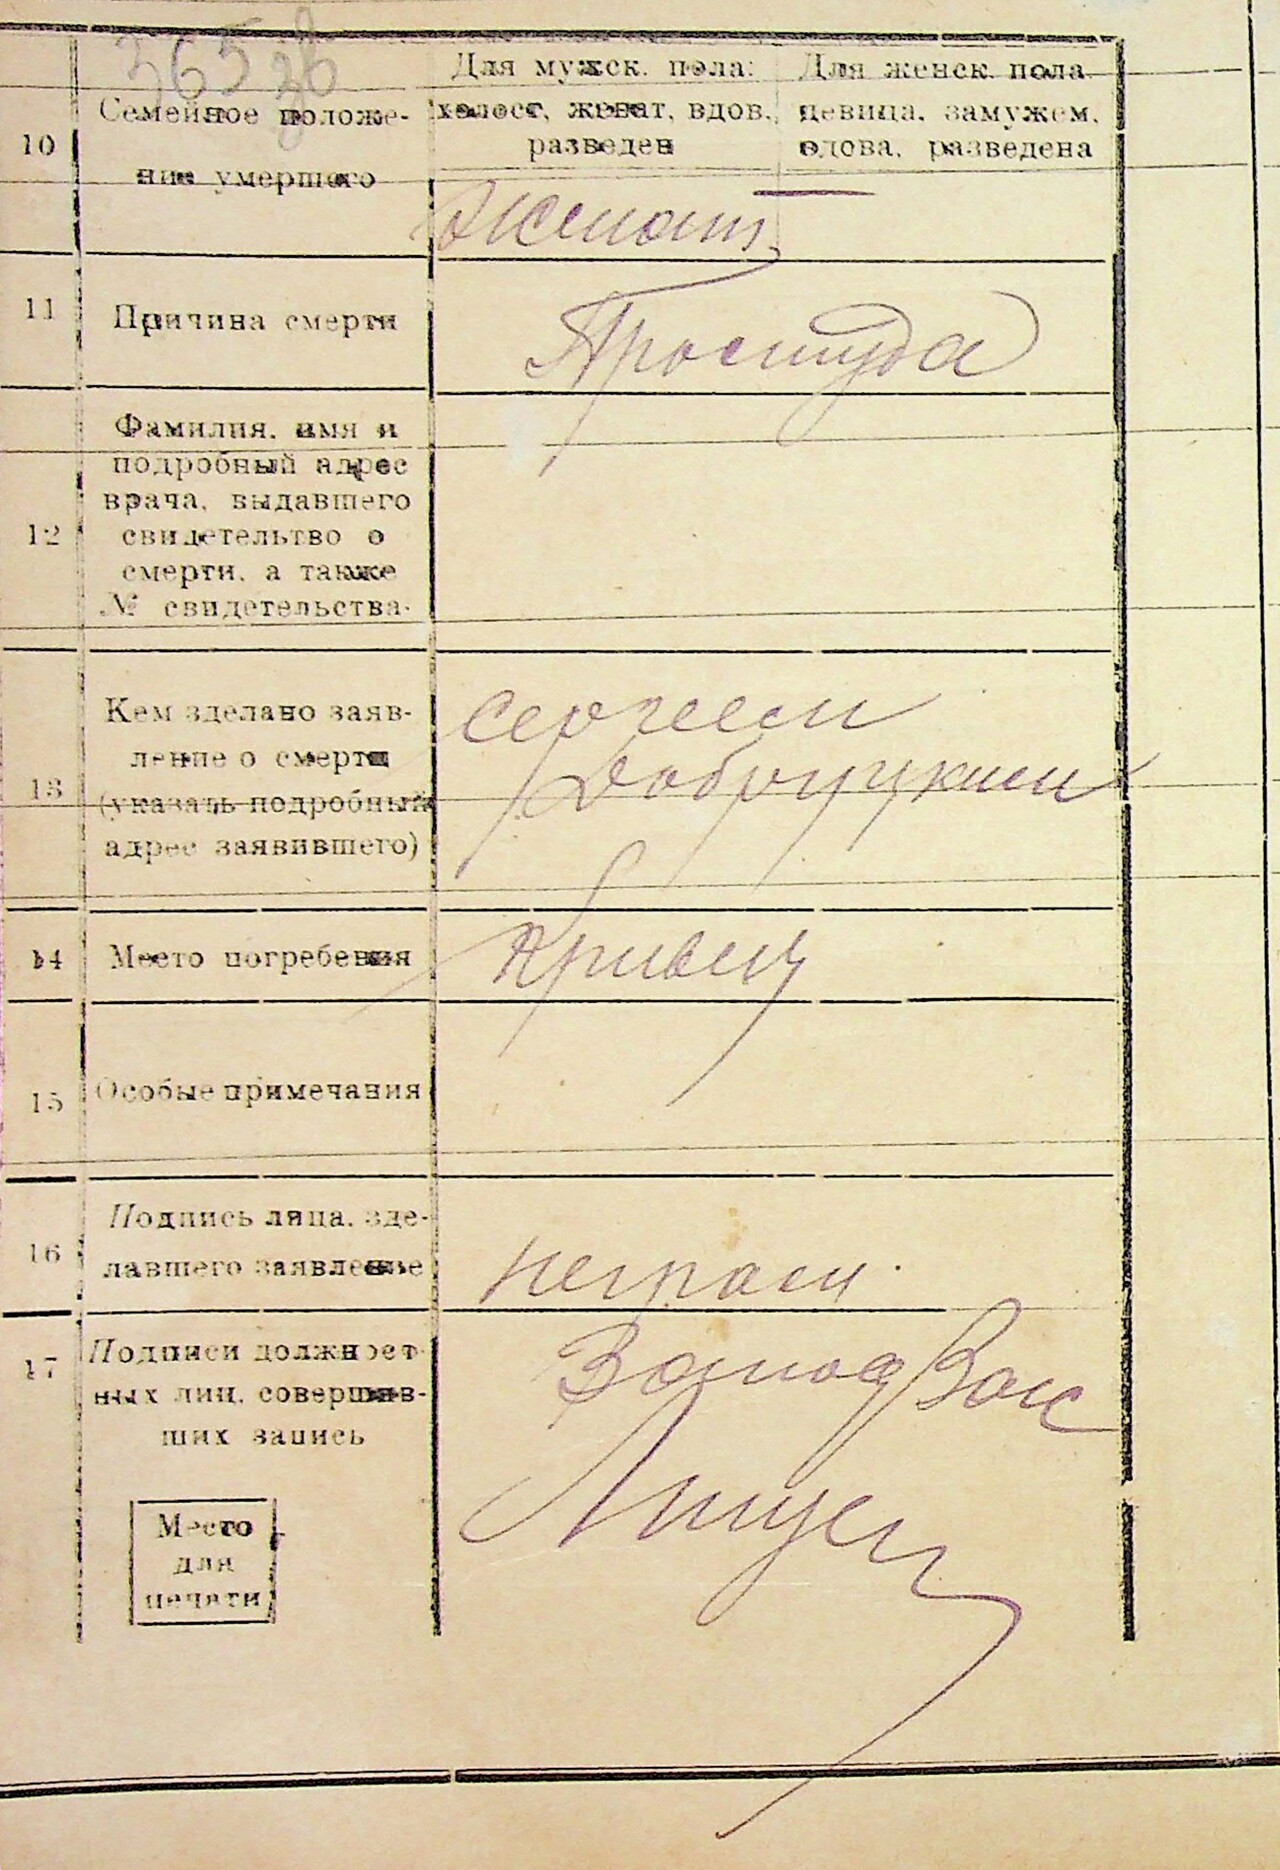 365 об
Для мужск. пола:
холост, женат, вдов.,
разведен
Для женск. пола
девица, замужем,
вдова, разведена
10
Семейное положе-
ние умершего
Женат
11
Причина смерти
Простуда
12
Фамилия, имя и
подробный адрес
врача, выдавшего
свидетельтво о
смерти, а также
№ свидетельства.
13
Кем зделано заяв-
ление о смерти
(указать подробный
адрес заявившего)
Сергеем
14
Место погребения
Кривец
15
Особые примечания
16
Подпись лица, зде-
лавшего заявление
неграм.
17
Подписи должност-
ных лиц, совершив-
ших запись
Место
для
печати